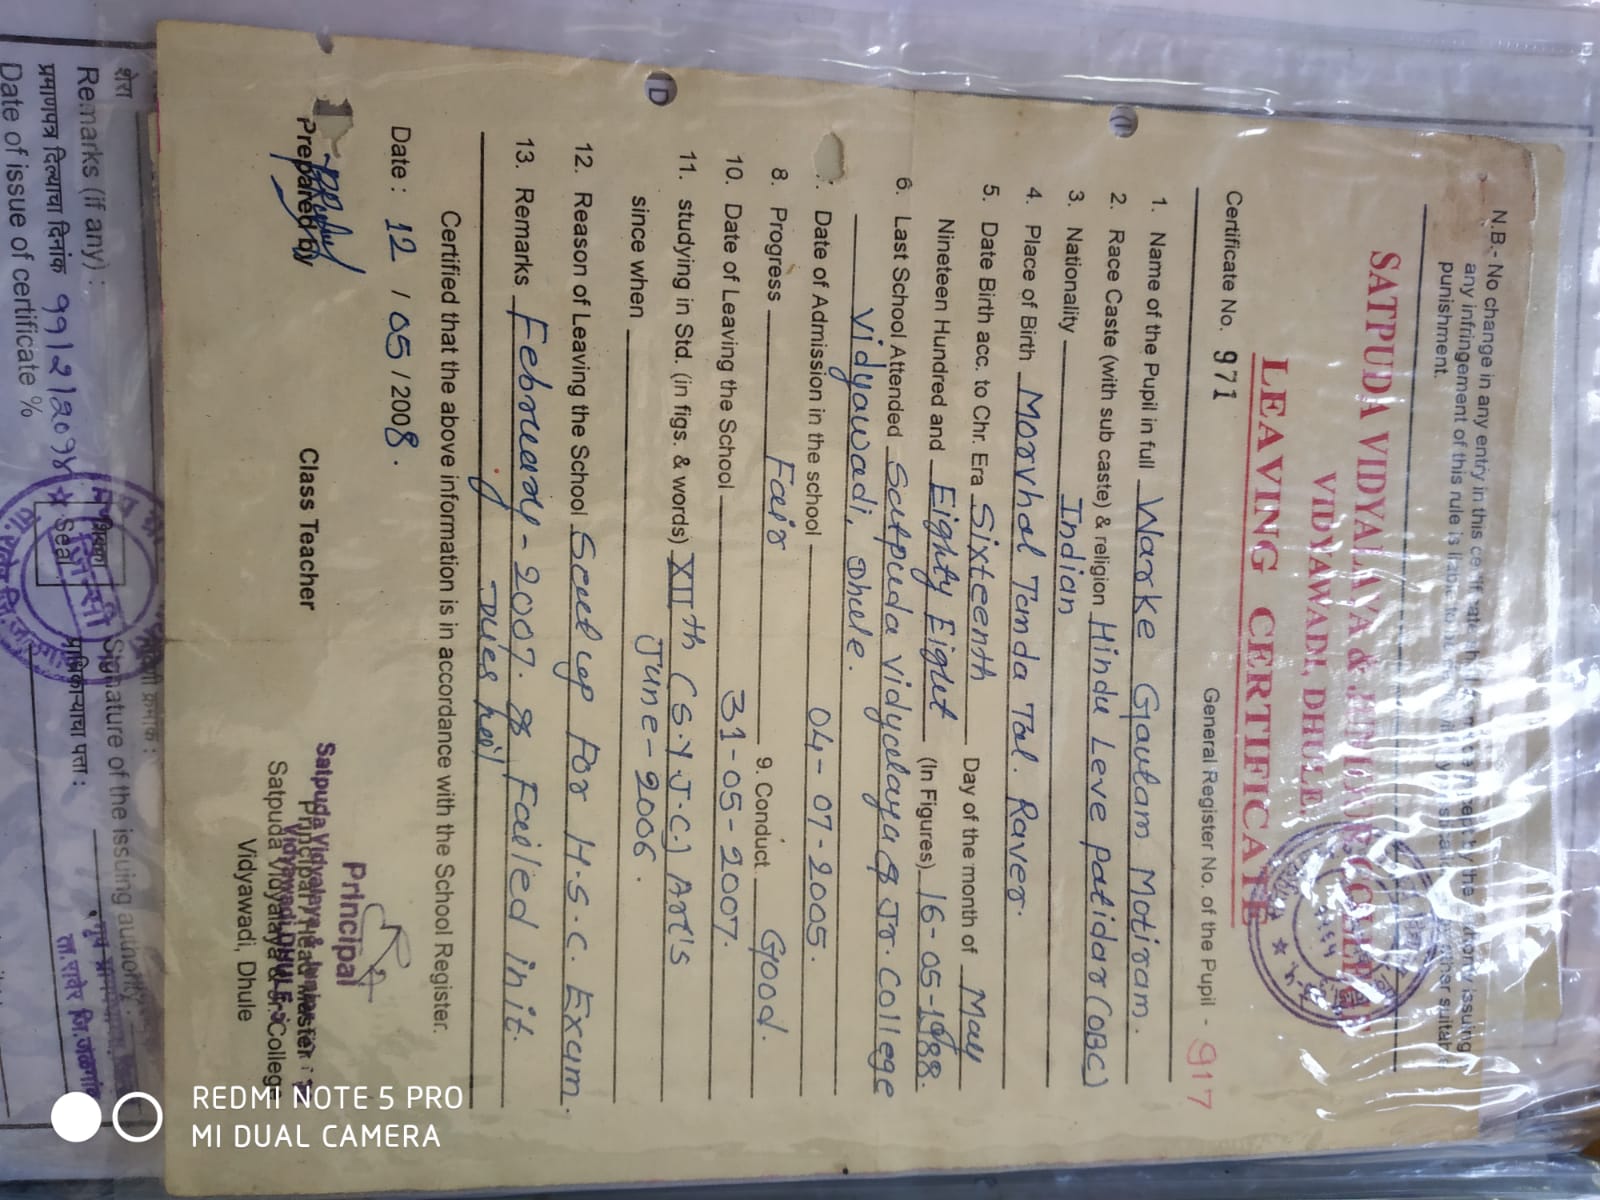 N.B.- No change in any entry in this
any infringement of this rule is liable to
punishment.
SATPUDA VIDYALAYA & JUNIOR COLLEGE
VIDYAWADI, DHULE.
LEAVING CERTIFICATE
Certificate No. 971 General Register No. of the Pupil - 917
1. Name of the Pupil in full Warke Gautam Motiram.
2. Race Caste (with sub caste) & religion Hindu Leve patidar (OBC)
3. Nationality Indian
4. Place of Birth Morvhal Tanda Tal. Raver.
5. Date Birth acc. to Chr. Era Sixteenth Day of the month of May
Nineteen Hundred and Eighty Eight (In Figures) 16-05-1988.
6. Last School Attended Satpuda Vidyalaya & Jr. College
Vidyawadi, Dhule.
Date of Admission in the school 04-07-2005.
8. Progress Fair 9. Conduct Good.
10. Date of Leaving the School 31-05-2007.
11. studying in Std. (in figs. & words) XIIth (S.Y.J.C.) Art's
since when June-2006.
12. Reason of Leaving the School Seet up For H.S.C. Exam.
13. Remarks February-2007. & Failed in it.
Dues nil
Certified that the above information is in accordance with the School Register.
Date : 12 / 05 / 2008.
Prepared by Class Teacher
Principal
Satpuda Vidyalaya & Junior College
Principal / Head Master
Vidyawadi, DHULE-
Satpuda Vidyalaya & Jr. College
Vidyawadi, Dhule
शेरा
Remarks (if any) : Signature of the issuing authority :
प्रमाणपत्र दिल्याचा दिनांक ११।२।२०१४
पत्ता :
Date of issue of certificate %
Seal
ता.रावेर जि.जळगांव
REDMI NOTE 5 PRO
MI DUAL CAMERA